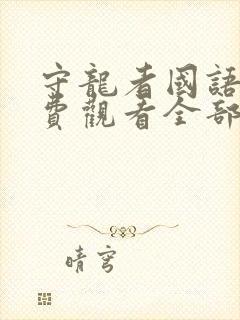 守龍者國語
費觀看全部
晴穹